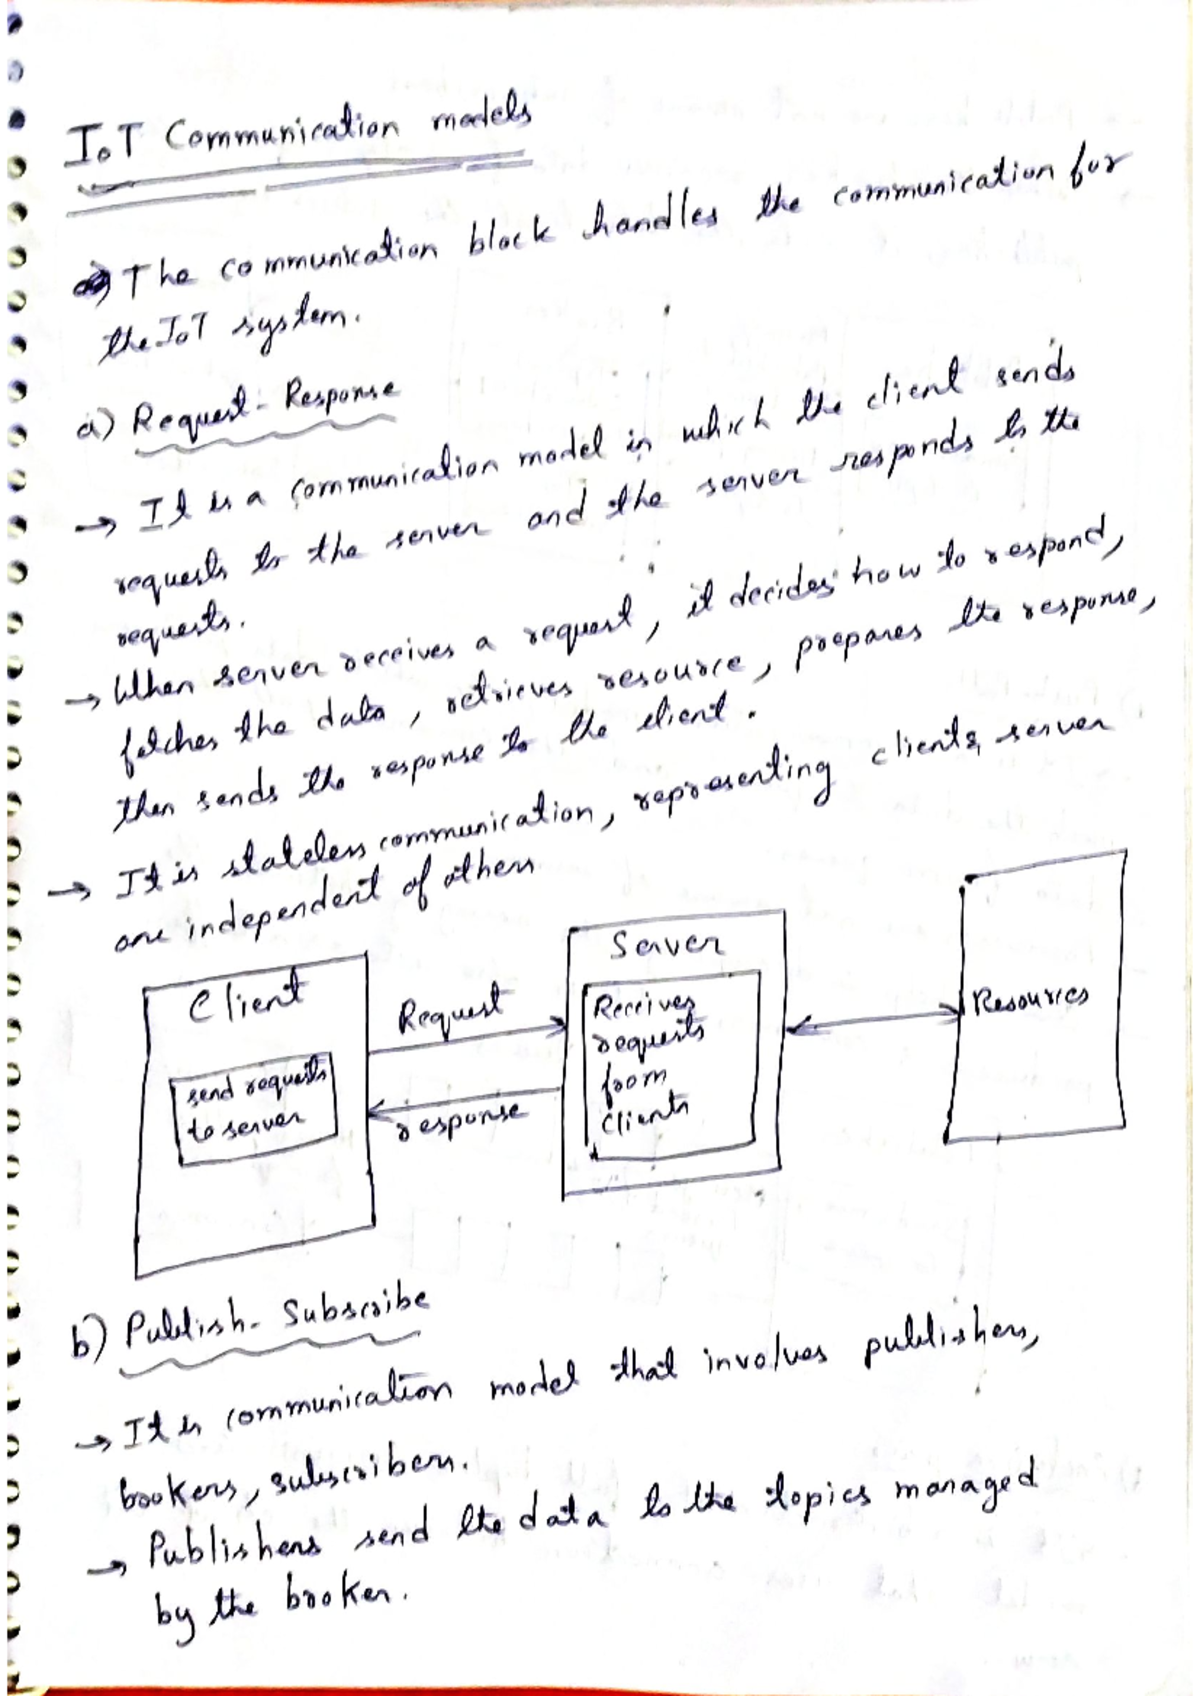 IoT Communication models
→ The communication block handles the communication for
the IoT system.
a) Request - Response
→ It is a communication model in which the client sends
requests to the server and the server responds to the
requests.
→ When server receives a request, it decides how to respond,
fetches the data, retrieves resource, prepares the response,
then sends the response to the client.
→ It is stateless communication, representing clients, server
are independent of others
Client
send requests
to server
Request
response
Server
Receives
requests
from
clients
Resources
b) Publish - Subscribe
→ It is communication model that involves publishers,
brokers, subscribers.
→ Publishers send the data to the topics managed
by the broker.